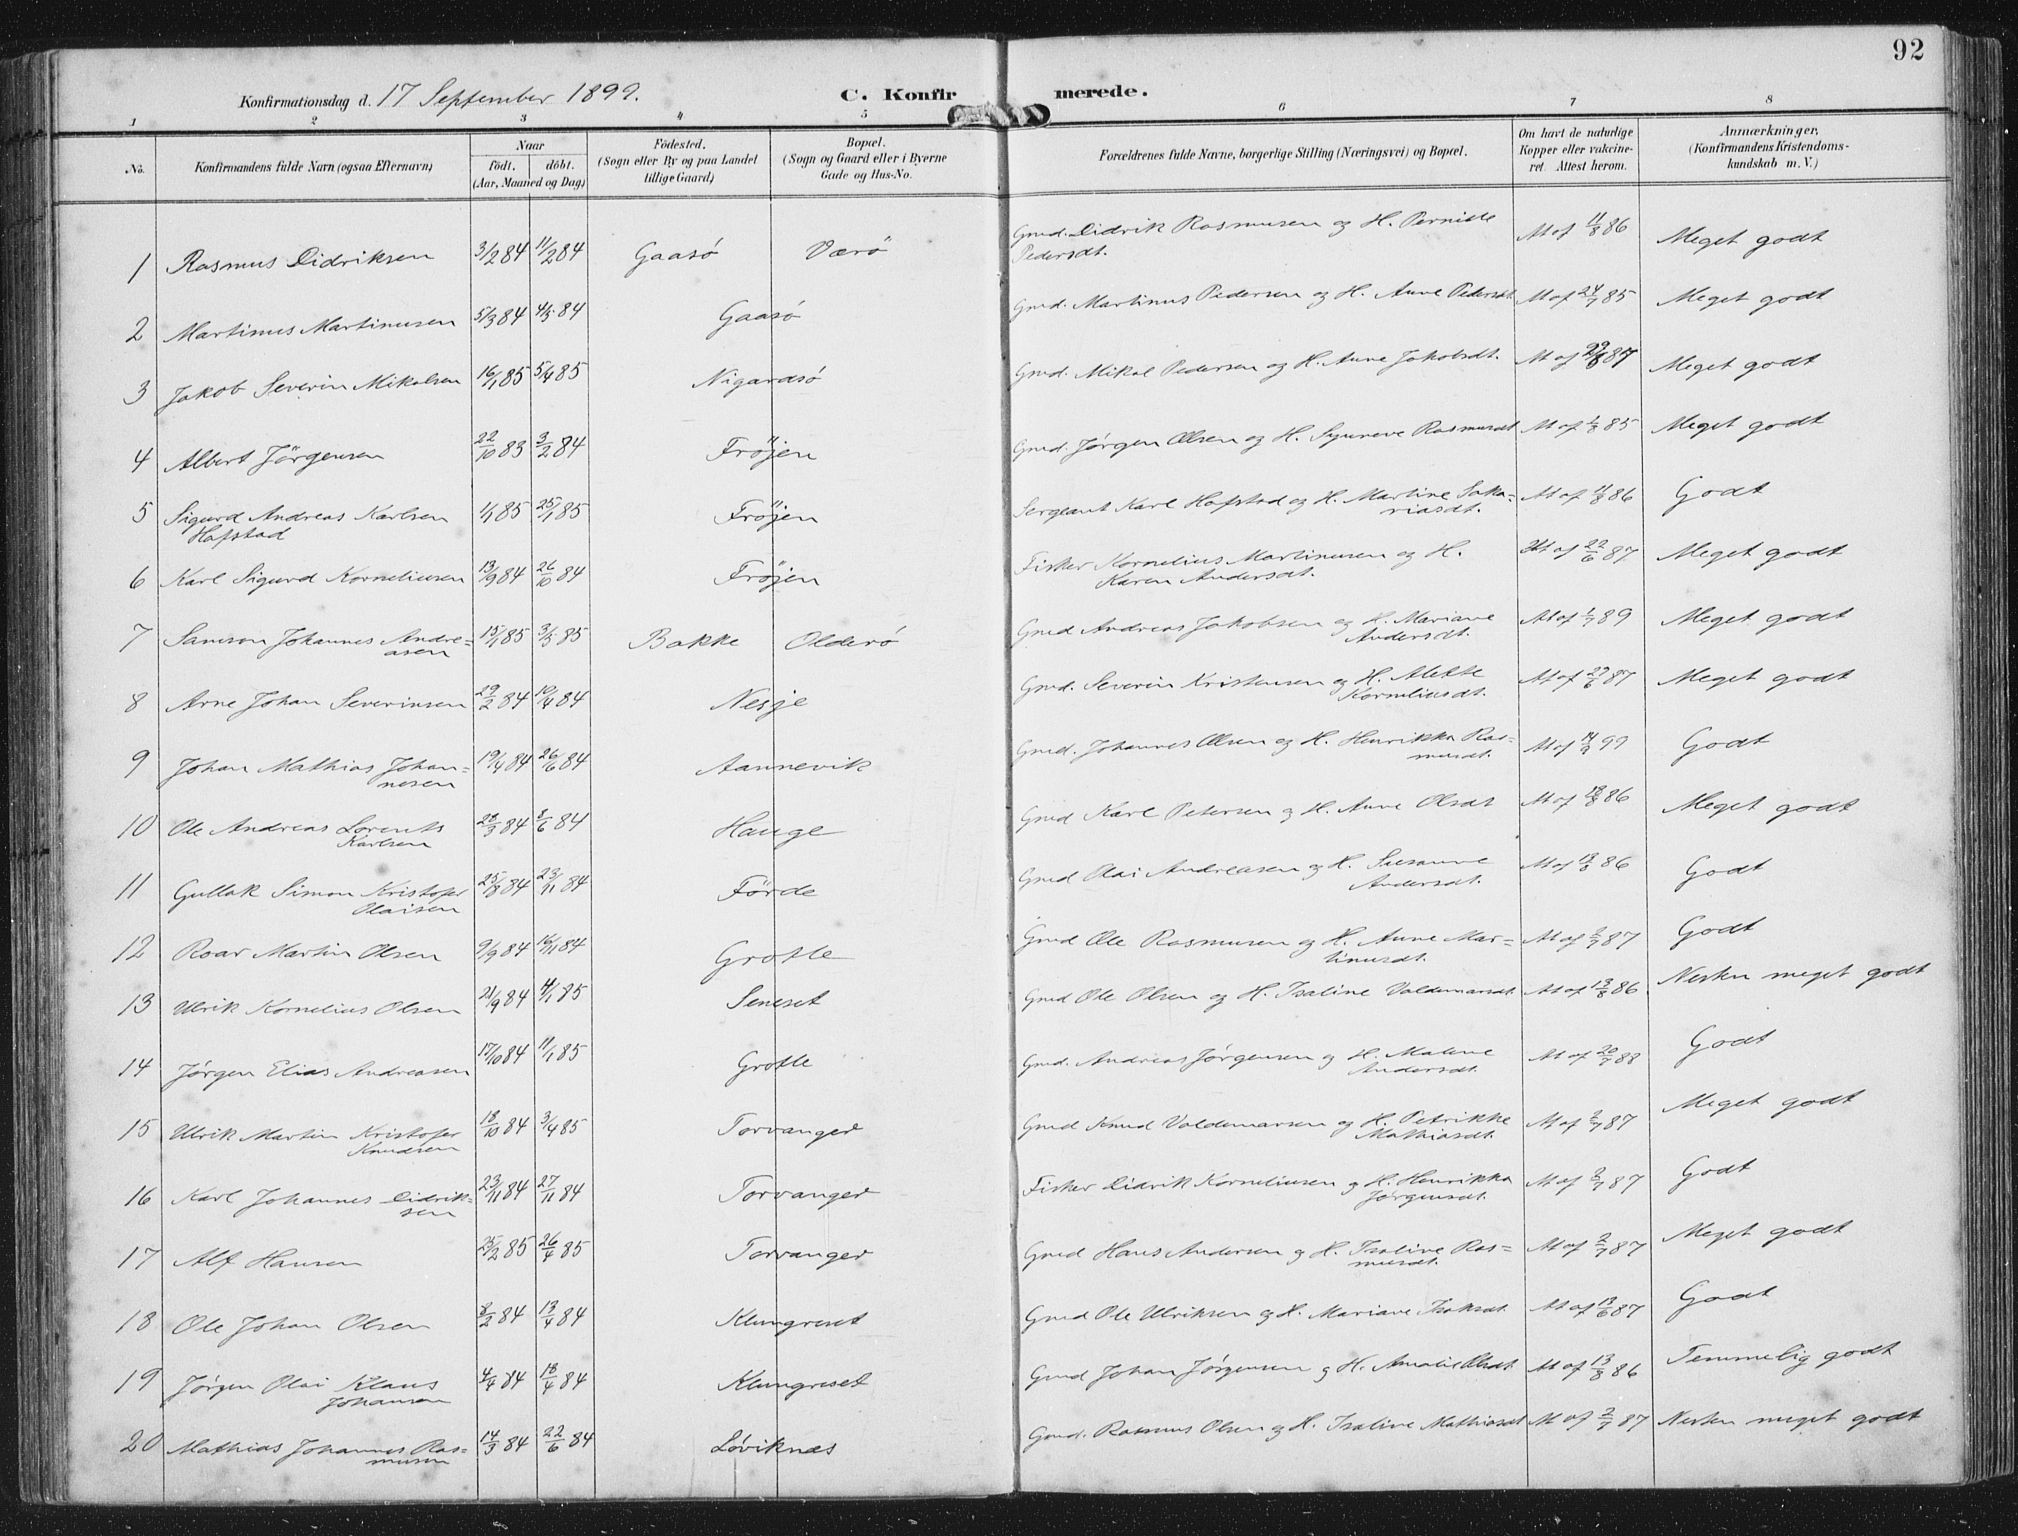 92
Konfirmationsdag d. 17 September 1899.
C. Konfirmerede.
1 2 3 4 5 6 7 8
No. Konfirmandens fulde Navn (ogsaa Efternavn) Naar födt. döbt. (Aar, Maaned og Dag) Födested. (Sogn eller By og paa Landet tillige Gaard) Bopæl. (Sogn og Gaard eller i Byerne Gade og Hus-No. Forældrenes fulde Navne, borgerlige Stilling (Næringsvei) og Bopæl. Om havt de naturlige Kopper eller vakcineret. Attest herom. Anmærkninger, (Konfirmandens Kristendomskundskab m. V.)
1 Rasmus Didriksen 3/2 84 11/2 84 Gaasö Værö Gmd. Didrik Rasmusen og H. Pernille Pedersdt. At af 11/8 86 Meget godt
2 Martinus Martinusen 5/3 84 4/5 84 Gaasö Gmd. Martinus Pedersen og H. Anne Pedersdt. At af 24/7 85 Meget godt
3 Jakob Severin Mikalsen 16/1 85 5/4 85 Nigardsö Gmd. Mikal Pedersen og H. Anne Jakobsdt. At af 87 Meget godt
4 Albert Jörgensen 22/10 83 3/2 84 Fröjen Gmd. Jørgen Olsen og H. Synneve Rasmusdt At af 1/8 85 Meget godt
5 Sigurd Andreas Karlsen Hofstad 1/1 85 25/1 85 Fröjen Sergeant Karl Hofstad og H. Martine Sakariasdt. At af 11/8 86 Godt
6 Karl Sigurd Korneliusen 13/9 84 26/10 84 Fröjen Fisker Kornelius Martinusen og H. Karen Andersdt. At af 22/6 87 Meget godt
7 Samson Johannes Andreasen 15/1 85 3/5 85 Bakke Olderö Gmd Andreas Jakobsen og H. Mariane Andersdt. At af 1/7 89 Meget godt
8 Arne Johan Severinsen 29/2 84 10/4 84 Nesje Gmd. Severin Kristensen og H. Alette Korneliusdt. At af 29/6 87 Meget godt
9 Johan Mathias Johannesen 19/4 84 26/6 84 Aannevik Gmd. Johannes Olsen og H. Henrikka Rasmusdt. At af 14/9 99 Godt
10 Ole Andreas Lorents Karlsen 28/3 84 8/6 84 Hauge Gmd Karl Petersen og H. Anne Olsdt At af 18/8 86 Meget godt
11 Gullak Simon Kristofer Olaisen 25/8 84 23/11 84 Förde Gmd Olai Andreasen og H. Susanne Andersdt. At af 18/8 86 Godt
12 Roar Martin Olsen 9/9 84 16/11 84 Grotle Gmd Ole Rasmusen og H. Anne Martinusdt. At af 2/7 87 Godt
13 Ulrik Kornelius Olsen 21/9 84 4/1 85 Seneset Gmd Ole Olsen og H. Isaline Valdemarsdt. At af 13/8 86 Nesten meget godt
14 Jørgen Elias Andreasen 17/10 84 11/1 85 Grotle Gmd. Andreas Jørgensen og H. Malene Andersdt. At af 20/7 88 Godt
15 Ulrik Martin Kristofer Knudsen 18/10 84 3/4 85 Torvanger Gmd Knud Valdemarsen og H. Petrikke Mathiasdt. At af 2/7 87 Meget godt
16 Karl Johannes Didriksen 23/11 84 27/11 84 Torvanger Fisker Didrik Korneliusen og H. Henrikka Jørgensdt. At af 2/7 87 Godt
17 Alf Hansen 25/2 85 26/4 85 Torvanger Gmd Hans Andersen og H. Isaline Rasmusdt. At af 2/7 87 Meget godt
18 Ole Johan Olsen 8/2 84 13/4 84 Klungreset Gmd Ole Ulriksen og H. Mariane Isaksdt. At af 13/6 87 Godt
19 Jørgen Olai Klaus Johansen 4/4 84 18/4 84 Klungreset Gmd Johan Jørgensen og H. Amalie Olsdt. At af 13/8 86 Temmelig godt
20 Mathias Johannes Rasmusen 14/3 84 22/6 84 Løviknæs Gmd. Rasmus Olsen og H. Isaline Mathiasdt At af 2/7 87 Nesten meget godt